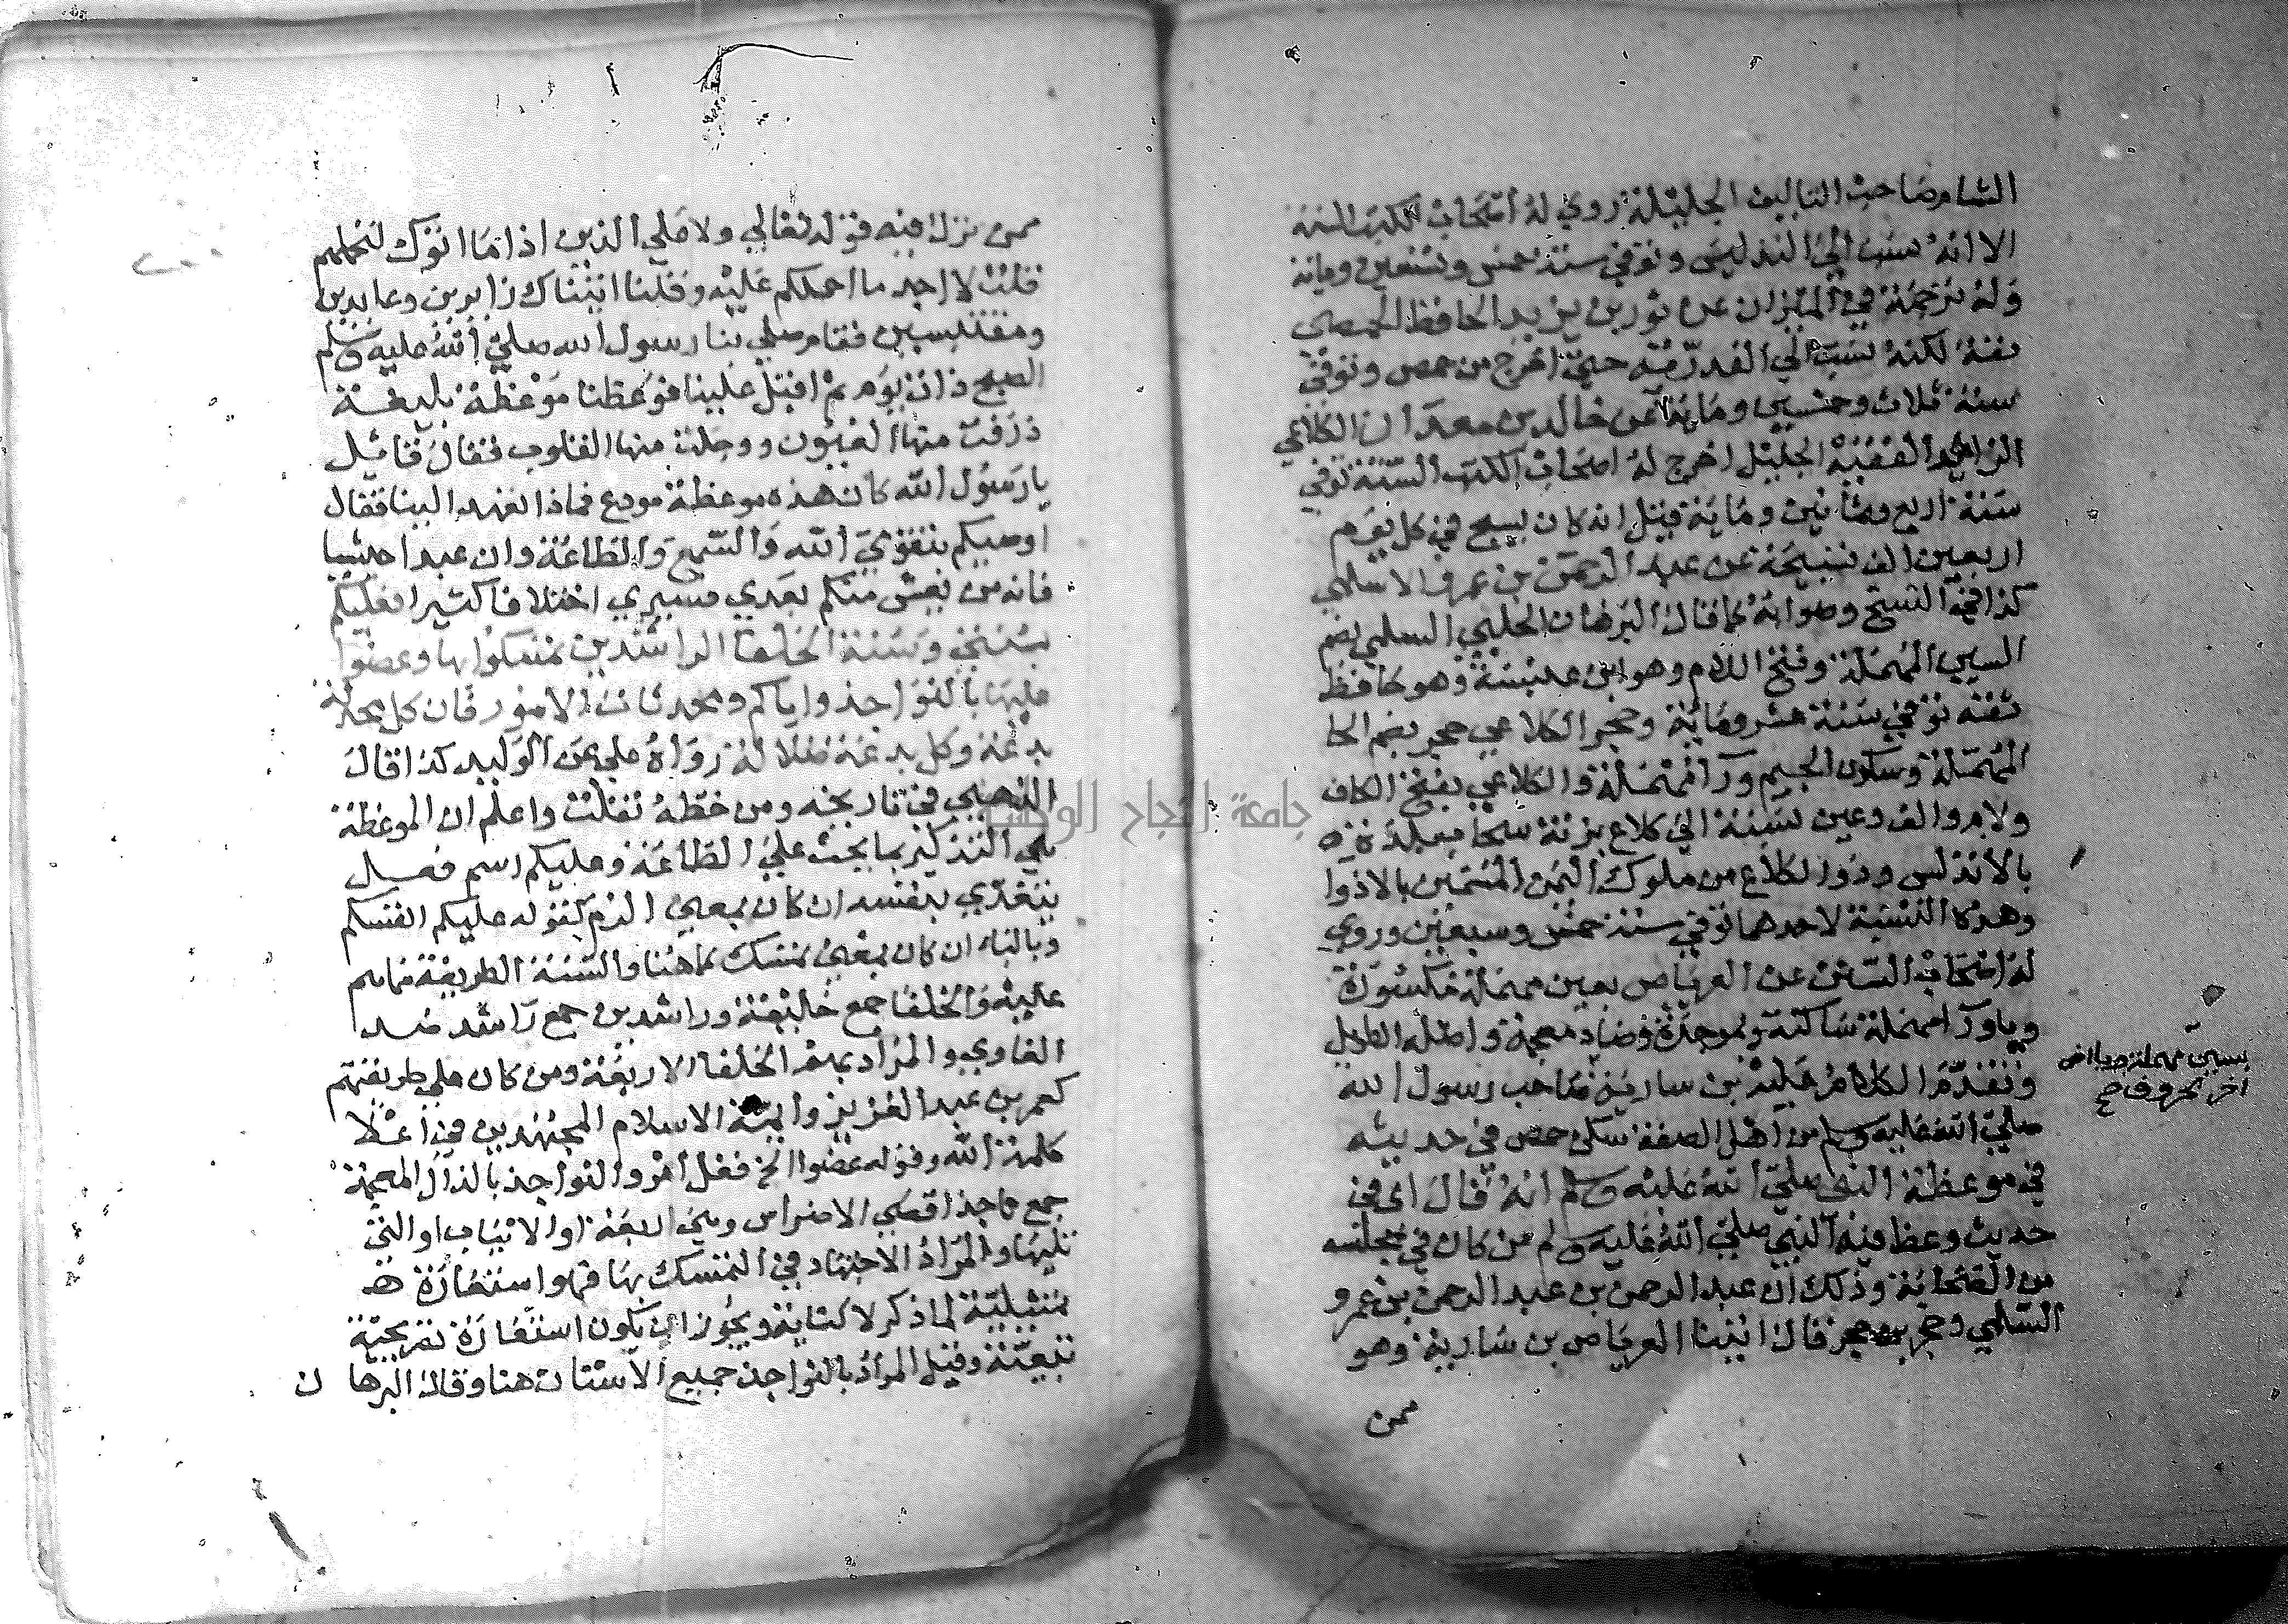 الشام صاحب التاليف الجليلة روي له أصحاب الكتب الستة
الا انه نسب الي التدليس وتوفي سنة خمس وتسعين وماية
وله ترجمة في الميزان عن ثور بن يزيد الحافظ الحمصي
ثقة لكنه نسب الي القدر حتي اخرج من حمص وتوفي
سنة ثلاث وخمسين وماية عن خالد بن معدان الكلاعي
الفقيه الجليل اخرج له اصحاب الكتب الستة توفي
سنة اربع وماية قيل انه كان يسبح في كل يوم
اربعين الف تسبيحة عن عبد الرحمن بن عمرو الاسلمي
كذا في النسخ وصوابه كما قال البرهان الحلبي السلمي بضم
السين المهملة وفتح اللام وهو ابن عبسة وهو حافظ
ثقة توفي سنة عشر وماية وحجر الكلاعي حجر بضم الحا
المهملة وسكون الجيم ورا مهملة والكلاعي بفتح الكاف
ولام والف وعين نسبة الي كلاع بزنة سحاب بلدة
بالاندلس وذو الكلاع من ملوك اليمن المسمين بالاذوا
وهذه النسبة لاحدهما توفي سنة خمس وسبعين وروي
له اصحاب السنن عن العرباض بعين مهملة مكسورة
ورا مهملة ساكنة وموحدة وضاد معجمة واصله الطويل
وتقدم الكلام عليه بن سارية صاحب رسول الله
بسين مهملة
اخر الحروف صح
صلي الله عليه وسلم من أهل الصفة سكن حمص في حديثه
في موعظة النبي صلي الله عليه وسلم انه قال اي في
حديث وعظ فيه النبي صلي الله عليه وسلم من كان في مجلسه
من الصحابة وذلك ان عبد الرحمن بن عبد الرحمن بن عمرو
السلمي وحجر بن حجر قال اتينا العرباض بن سارية وهو
ممن
ممن نزل فيه قوله تعالي ولا علي الذين اذا ما اتوك لتحملهم
قلت لا اجد ما احملكم عليه وقلنا اتيناك زايرين وعايدين
ومقتبسين فقام صلي بنا رسول الله صلي الله عليه وسلم
الصبح ذات يوم ثم اقبل علينا فوعظنا موعظة بليغة
ذرفت منها العيون ووجلت منها القلوب فقال قائل
يا رسول الله كان هذه موعظة مودع فماذا تعهد الينا فقال
اوصيكم بتقوي الله والسمع والطاعة وان عبدا حبشيا
فانه من يعش منكم بعدي فسيري اختلافا كثيرا فعليكم
بسنتي وسنة الخلفا الراشدين تمسكوا بها وعضوا
عليها بالنواجذ واياكم ومحدثات الامور فان كل محدثة
بدعة وكل بدعة ضلالة رواه علي عن الوليد كذا قال
الذهبي في تاريخه ومن خطه نقلت واعلم ان الموعظة
هي التذكير بما يحث علي الطاعة وعليكم اسم فعل
يتعدي بنفسه ان كان بمعني الزم كقوله عليكم انفسكم
وبالباء ان كان بمعني تمسك كما هنا والسنة الطريقة
عليه والخلفا جمع خليفة وراشدين جمع راشد ضد
الغاوي والمراد بهم الخلفا الاربعة ومن كان علي طريقتهم
كعمر بن عبد العزيز وايمة الاسلام المجتهدين في اعلا
كلمة الله وقوله عضوا الخ فعل امر والنواجذ بالذال المعجمة
جمع ناجذ اقصي الاضراس وهي اربعة او الانياب او التي
تليها والمراد الاجتهاد في التمسك بها فهو استعارة
تمثيلية لما ذكر لا كناية ويجوز ان يكون استعارة تصريحية
تبعية وقيل المراد بالنواجذ جميع الاسنان هنا وقال البرهان
جامعة النجاح الوطنية